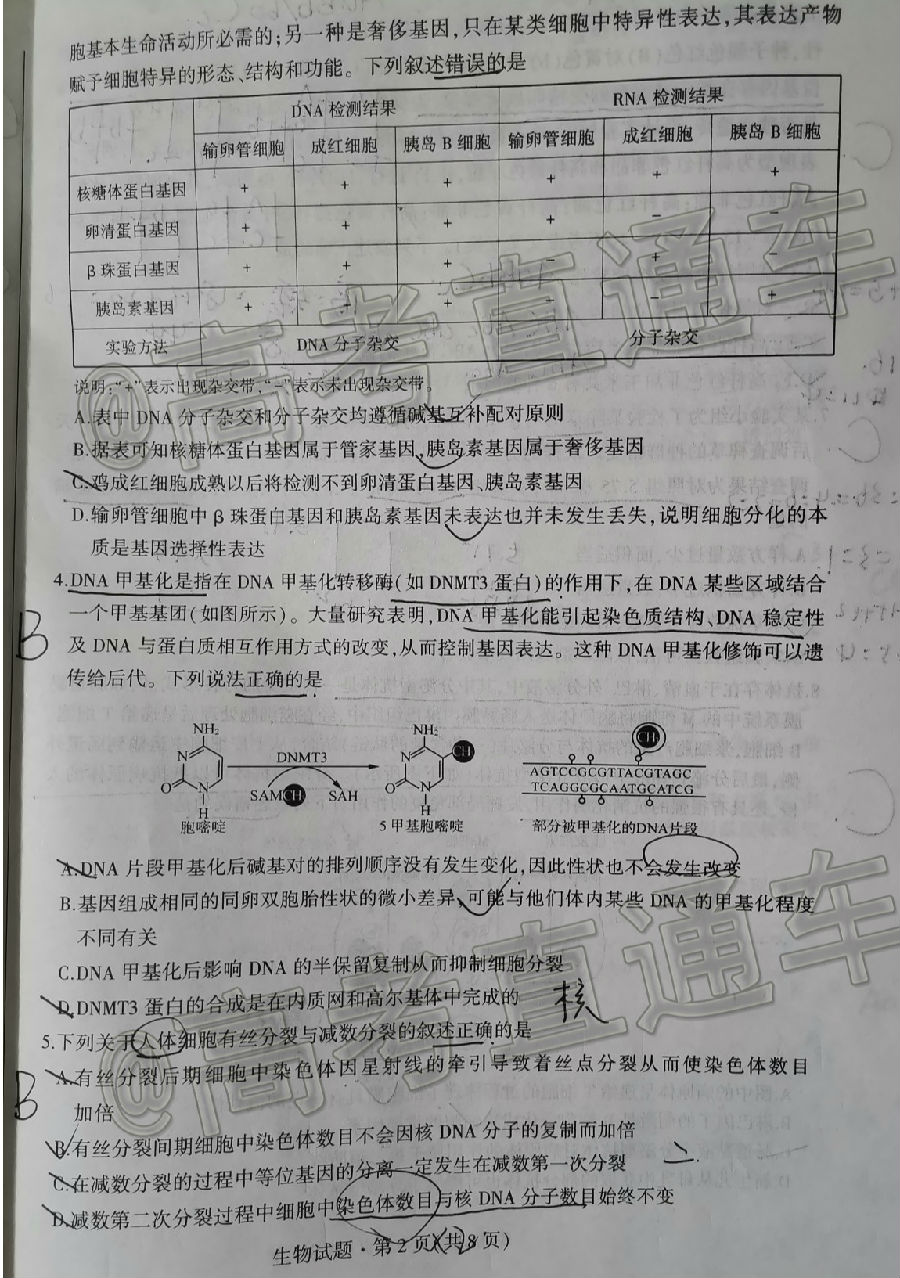 胞基本生命活动所必需的;另一种是奢侈基因,只在某类细胞中特异性表达,其表达产物
赋予细胞特异的形态、结构和功能。下列叙述错误的是
DNA 检测结果 RNA 检测结果
输卵管细胞 成红细胞 胰岛 B 细胞 输卵管细胞 成红细胞 胰岛 B 细胞
核糖体蛋白基因 + + + + + +
卵清蛋白基因 + + + + − −
β珠蛋白基因 + + + − + −
胰岛素基因 + + + − − +
实验方法 DNA 分子杂交 分子杂交
说明:“+”表示出现杂交带,“−”表示未出现杂交带。
A.表中 DNA 分子杂交和分子杂交均遵循碱基互补配对原则
B.据表可知核糖体蛋白基因属于管家基因、胰岛素基因属于奢侈基因
C.鸡成红细胞成熟以后将检测不到卵清蛋白基因、胰岛素基因
D.输卵管细胞中β珠蛋白基因和胰岛素基因未表达也并未发生丢失,说明细胞分化的本
质是基因选择性表达
4.DNA 甲基化是指在 DNA 甲基化转移酶(如 DNMT3 蛋白)的作用下,在 DNA 某些区域结合
一个甲基基团(如图所示)。大量研究表明,DNA 甲基化能引起染色质结构、DNA 稳定性
B
及 DNA 与蛋白质相互作用方式的改变,从而控制基因表达。这种 DNA 甲基化修饰可以遗
传给后代。下列说法正确的是
NH₂ NH₂ CH₃ CH₃
DNMT3
N N
O N O N
H H
SAM CH₃ SAH
AGTCCGCGTTACGTAGC
TCAGGCGCAATGCATCG
胞嘧啶 5 甲基胞嘧啶 部分被甲基化的DNA片段
A.DNA 片段甲基化后碱基对的排列顺序没有发生变化,因此性状也不会发生改变
B.基因组成相同的同卵双胞胎性状的微小差异,可能与他们体内某些 DNA 的甲基化程度
不同有关
C.DNA 甲基化后影响 DNA 的半保留复制从而抑制细胞分裂
D.DNMT3 蛋白的合成是在内质网和高尔基体中完成的 核
5.下列关于人体细胞有丝分裂与减数分裂的叙述正确的是
A.有丝分裂后期细胞中染色体因星射线的牵引导致着丝点分裂从而使染色体数目
B
加倍
B.有丝分裂间期细胞中染色体数目不会因核 DNA 分子的复制而加倍
C.在减数分裂的过程中等位基因的分离一定发生在减数第一次分裂 二
D.减数第二次分裂过程中细胞中染色体数目与核 DNA 分子数目始终不变
生物试题·第 2 页(共 8 页)
@高考直通车
@高考直通车